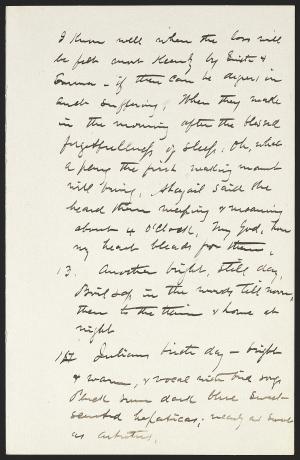 I know well when the loss will
be felt most keenly by Smith &
Emma - if there can be degrees in
such suffering; When they wake
in the morning after the blessed
forgetfullness of sleep. Oh, what
a pang the first waking moment
will bring. Abigail said she
heard them weeping & moaning
about 4 O'clock, My God, how
my heart bleeds for them.
13. Another bright, still day,
Boil sap in the woods till noon,
then to the train & home at
night
15 Julians birth day - bright
& warm, & vocal with bird songs
Pluck some dark blue sweet-
scented hepaticas; nearly as sweet
as arbutus.